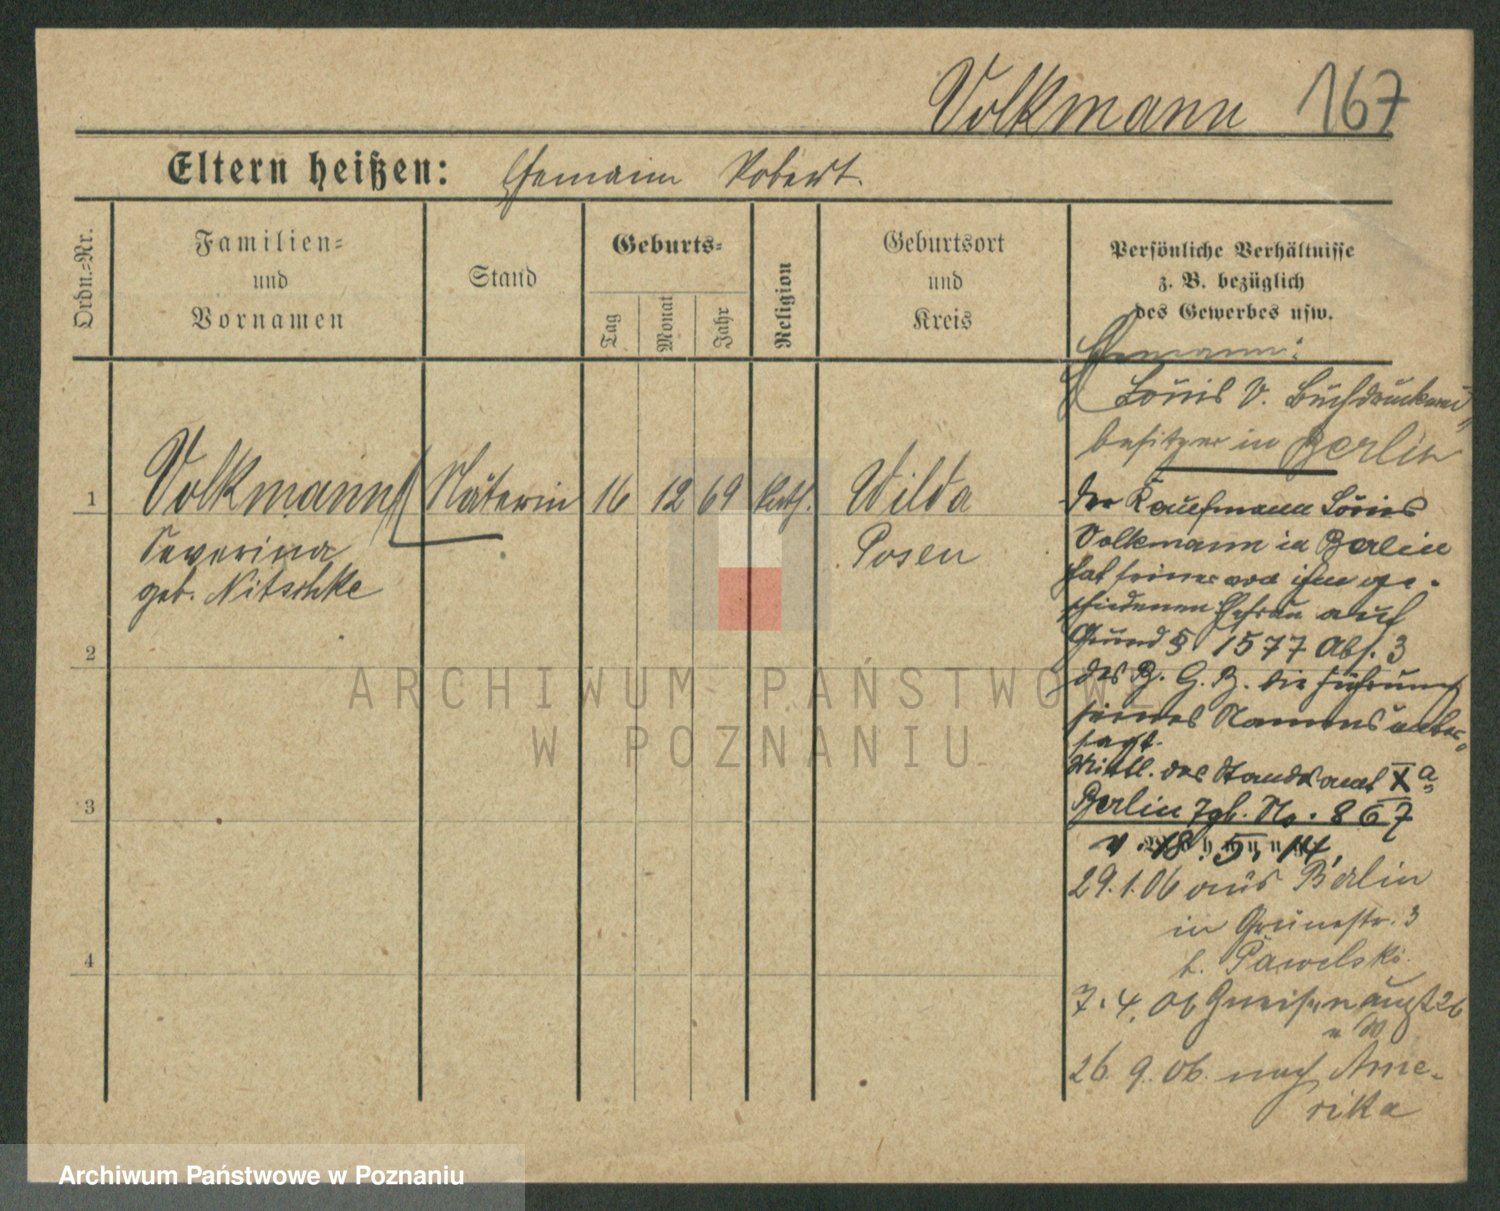 Volkmann 167
Eltern heißen: Ehemann Robert.
Ordn.-Nr.
Familien-
und
Vornamen
Stand
Geburts-
Tag
Monat
Jahr
Religion
Geburtsort
und
Kreis
Persönliche Verhältnisse
z. B. bezüglich
des Gewerbes usw.
Ehemann:
Louis V. Buchdruckerei
besitzer in Berlin
1 Volkmann Näterin 16 12 69 kath. Wilda
Severina Posen
geb. Nitschke
2
3
4
Der Kaufmann Louis
Volkmann in Berlin
hat seiner von ihm ge-
schiedenen Ehefrau auf
Grund § 1577 Abs. 3
des B. G. B. die Führung
seines Namens unter-
sagt.
Mittl. des Standesamt Xa
Berlin Tgb. No. 867
v. 18. 5. 14.
29.1.06 aus Berlin
in Grünestr. 3
b. Pawelski.
7. 4. 06 Gneisenaustr 26
26. 9. 06. nach Ame-
rika
ARCHIWUM PAŃSTWOWE
W POZNANIU
Archiwum Państwowe w Poznaniu